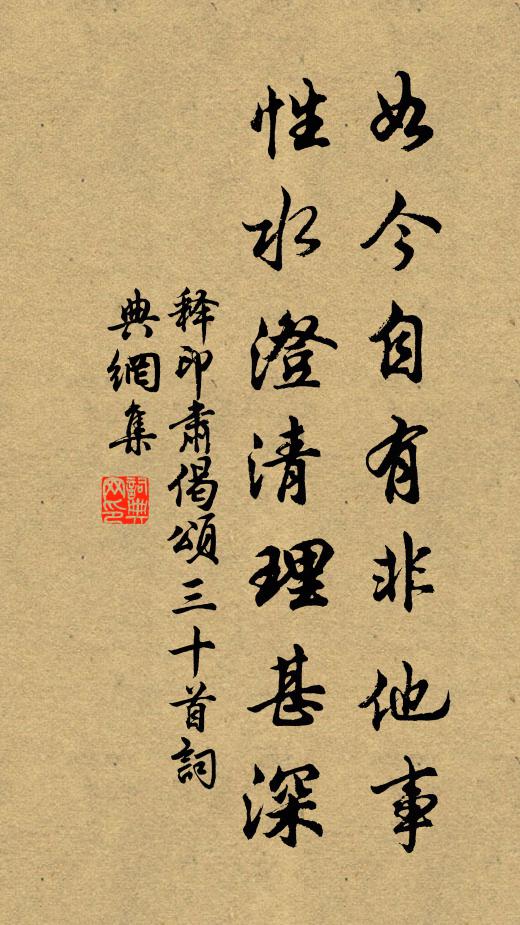 如今自有非他事
性水澄清理甚深
释印肃偈頌三十首詞
典網集
詞典
网印